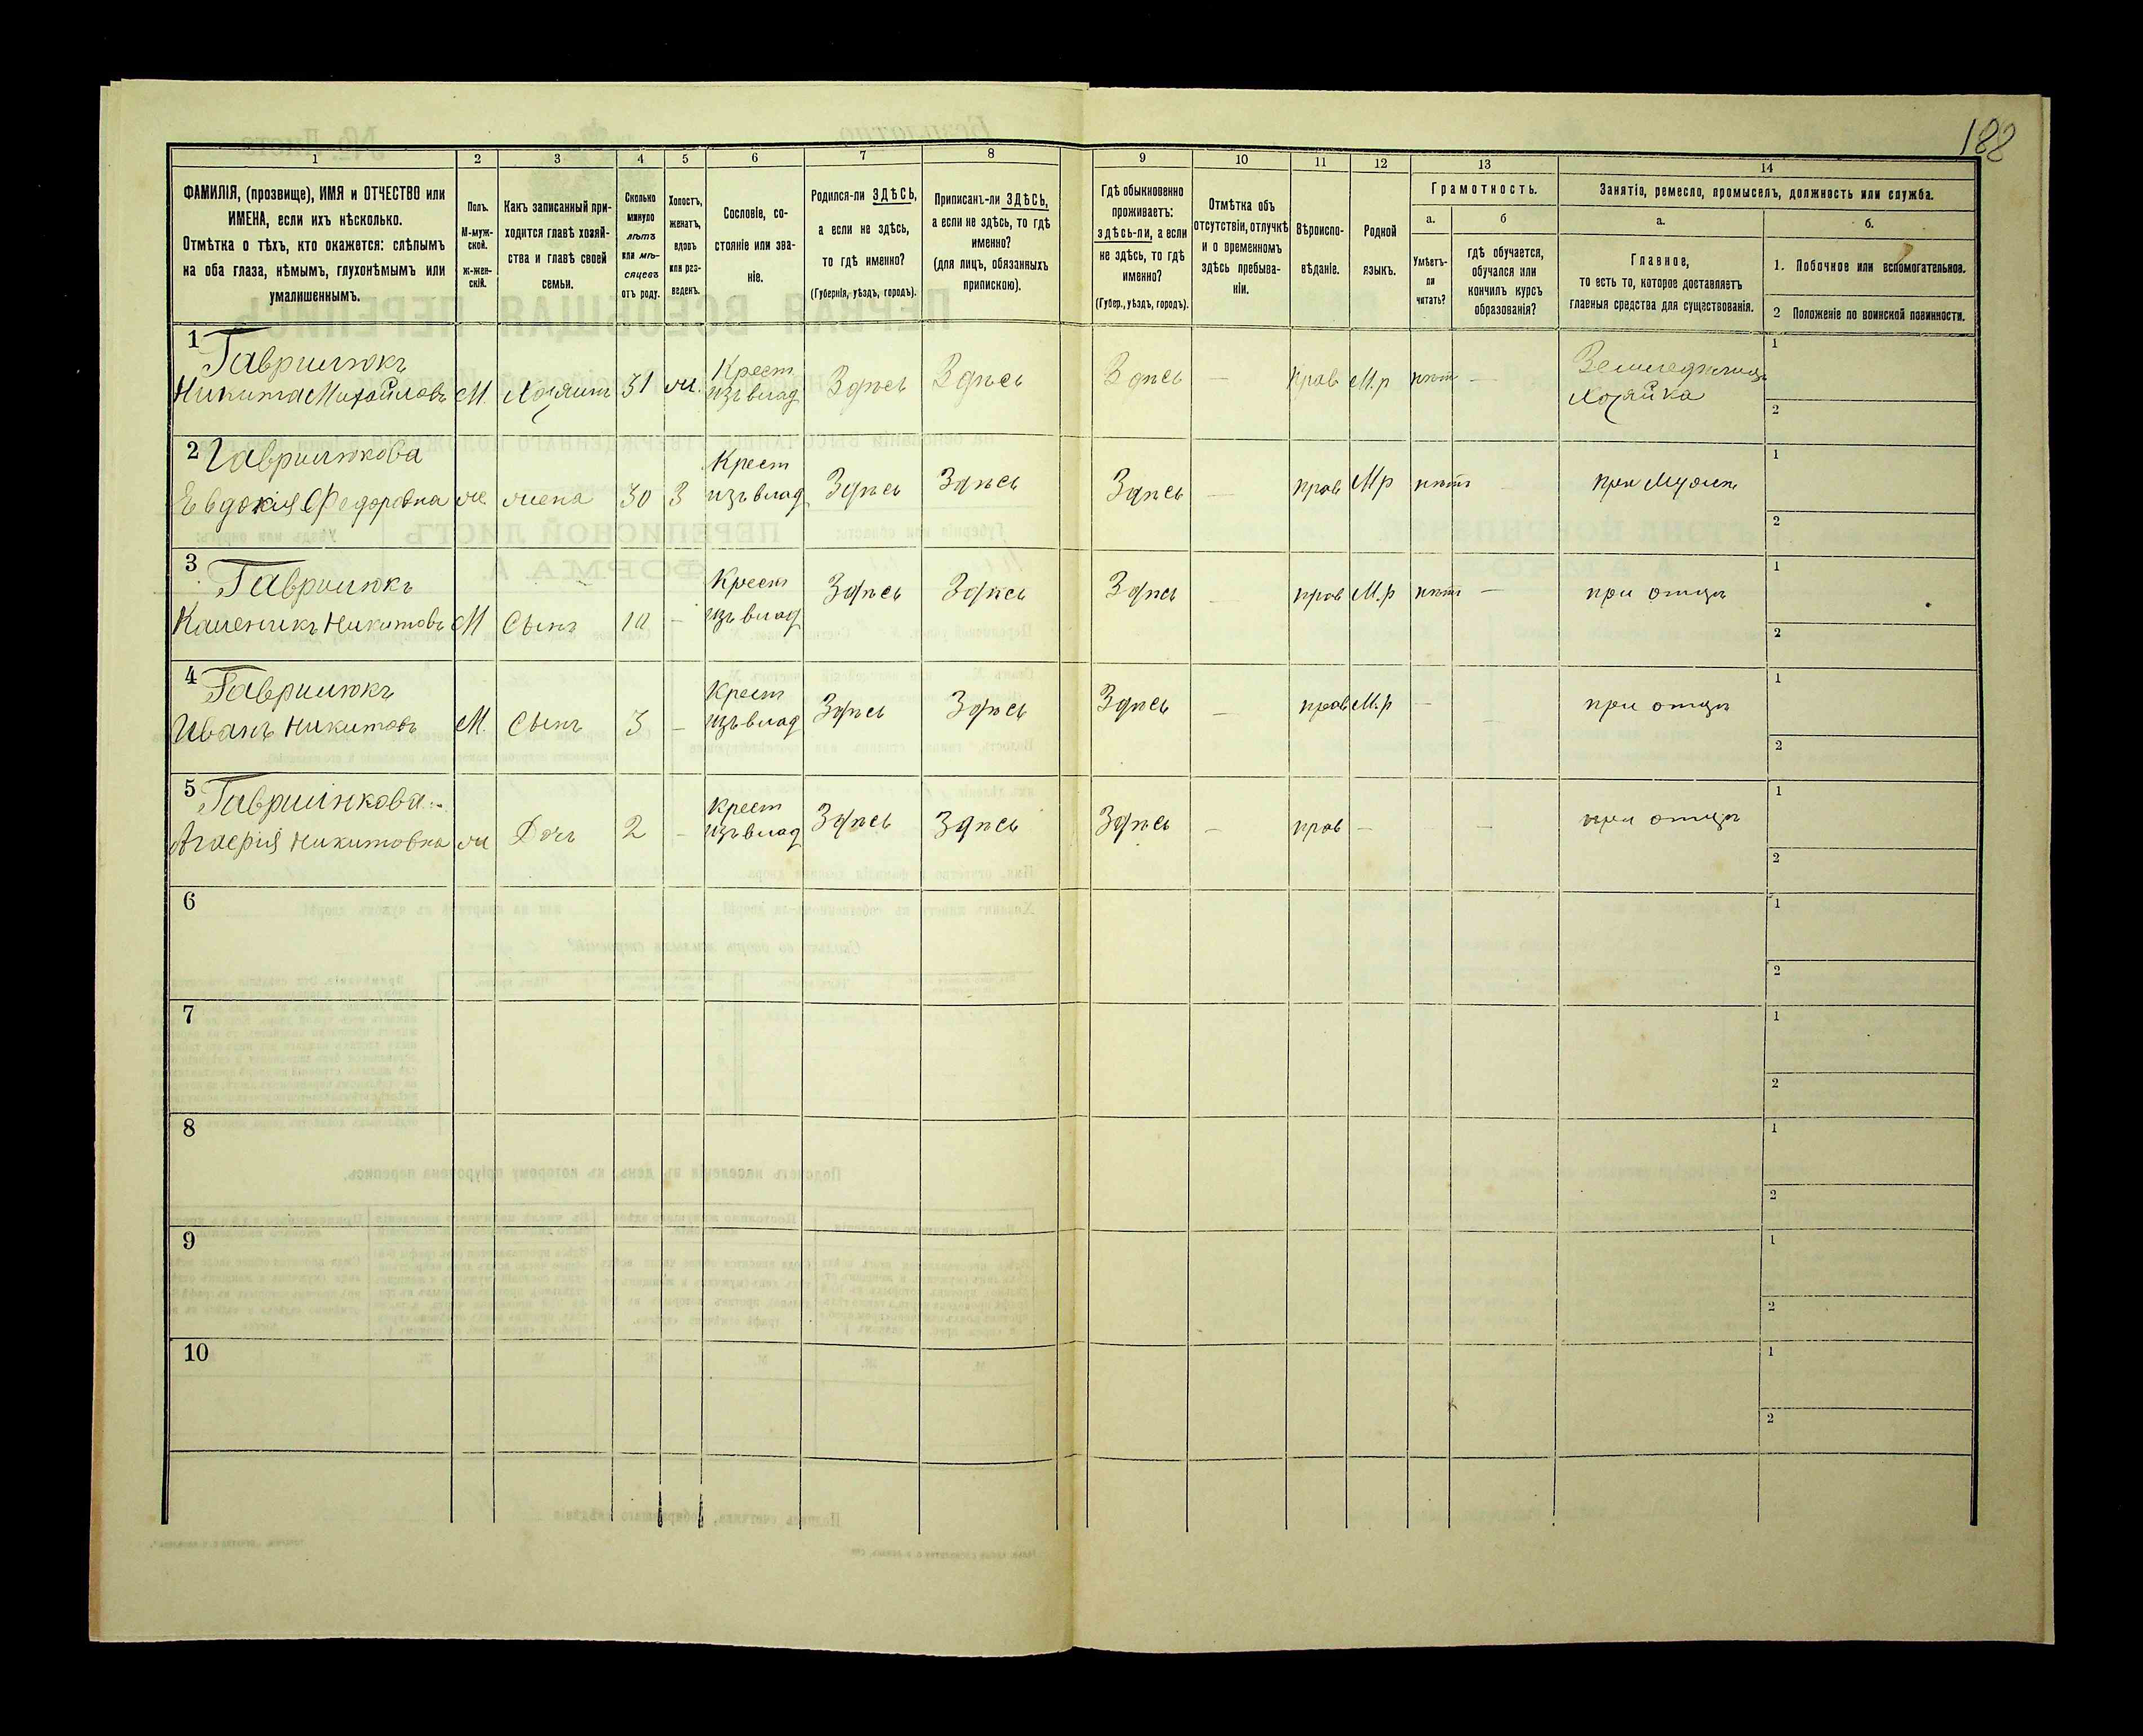 188
1
2
3
4
5
6
7
8
9
10
11
12
13
14
ФАМИЛІЯ, (прозвище), ИМЯ и ОТЧЕСТВО или
ИМЕНА, если ихъ нѣсколько.
Отмѣтка о тѣхъ, кто окажется: слѣпымъ
на оба глаза, нѣмымъ, глухонѣмымъ или
умалишеннымъ.
Полъ.
М-муж-
ской.
ж-жен-
скій.
Какъ записанный при-
ходится главѣ хозяй-
ства и главѣ своей
семьи.
Сколько
минуло
лѣтъ
или мѣ-
сяцевъ
отъ роду.
Холостъ,
женатъ,
вдовъ
или раз-
веденъ.
Сословіе, со-
стояніе или зва-
ніе.
Родился-ли ЗДѢСЬ,
а если не здѣсь,
то гдѣ именно?
(Губернія, уѣздъ, городъ).
Приписанъ-ли ЗДѢСЬ,
а если не здѣсь, то гдѣ
именно?
(для лицъ, обязанныхъ
припискою).
Гдѣ обыкновенно
проживаетъ:
здѣсь-ли, а если
не здѣсь, то гдѣ
именно?
(Губер., уѣздъ, городъ).
Отмѣтка объ
отсутствіи, отлучкѣ
и о временномъ
здѣсь пребыва-
ніи.
Вѣроиспо-
вѣданіе.
Родной
языкъ.
Грамотность.
а.
б
Умѣетъ-
ли
читать?
гдѣ обучается,
обучался или
кончилъ курсъ
образованія?
Занятіе, ремесло, промыселъ, должность или служба.
а.
б.
Главное,
то есть то, которое доставляетъ
главныя средства для существованія.
1. Побочное или вспомогательное.
2 Положеніе по воинской повинности.
1
Гаврилюкъ
Никита Михайловъ М. Хозяинъ 31 ж. Крест изъ влад Здѣсь Здѣсь Здѣсь — прав М.р нѣтъ —
Хозяйка
1
2
2
Гаврилюкова
Евдокія Федоровна ж жена 30 З Крест изъ влад Здѣсь Здѣсь Здѣсь — прав М.р нѣтъ - при мужѣ
1
2
3
Гаврилюкъ
Никитовъ М Сынъ 10 - Крест изъ влад Здѣсь Здѣсь Здѣсь — прав М.р нѣтъ — при отцѣ
1
2
4
Гаврилюкъ
Иванъ Никитовъ М. Сынъ 3 - Крест изъ влад Здѣсь Здѣсь Здѣсь — прав М.р — — при отцѣ
1
2
5
Гаврилюкова
Никитовна ж Дочь 2 - Крест изъ влад Здѣсь Здѣсь Здѣсь — прав — — при отцѣ
1
2
6
1
2
7
1
2
8
1
2
9
1
2
10
1
2